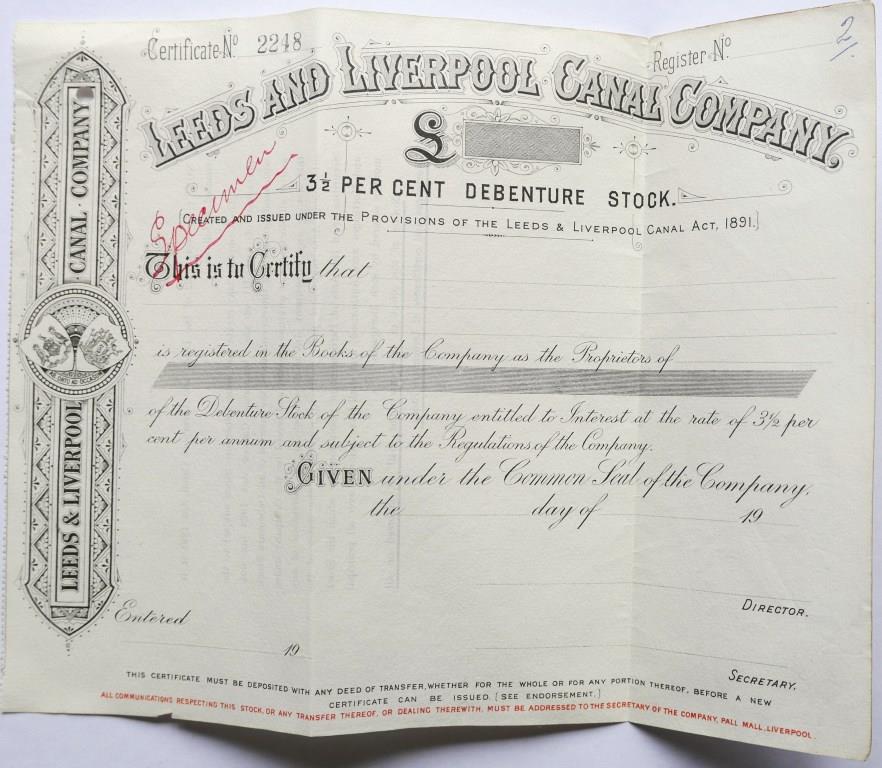 Certificate No 2248
Register No. 2
LEEDS AND LIVERPOOL CANAL COMPANY,
£
3½ PER CENT DEBENTURE STOCK.
Specimen
[CREATED AND ISSUED UNDER THE PROVISIONS OF THE LEEDS & LIVERPOOL CANAL ACT, 1891.]
This is to Certify that
is registered in the Books of the Company as the Proprietors of
of the Debenture Stock of the Company entitled to Interest at the rate of 3½ per
cent per annum and subject to the Regulations of the Company.
GIVEN under the Common Seal of the Company,
the day of 19
DIRECTOR.
Entered
19
SECRETARY.
THIS CERTIFICATE MUST BE DEPOSITED WITH ANY DEED OF TRANSFER, WHETHER FOR THE WHOLE OR FOR ANY PORTION THEREOF, BEFORE A NEW
CERTIFICATE CAN BE ISSUED. [SEE ENDORSEMENT.]
ALL COMMUNICATIONS RESPECTING THIS STOCK, OR ANY TRANSFER THEREOF, OR DEALING THEREWITH, MUST BE ADDRESSED TO THE SECRETARY OF THE COMPANY, PALL MALL, LIVERPOOL.
LEEDS & LIVERPOOL CANAL · COMPANY